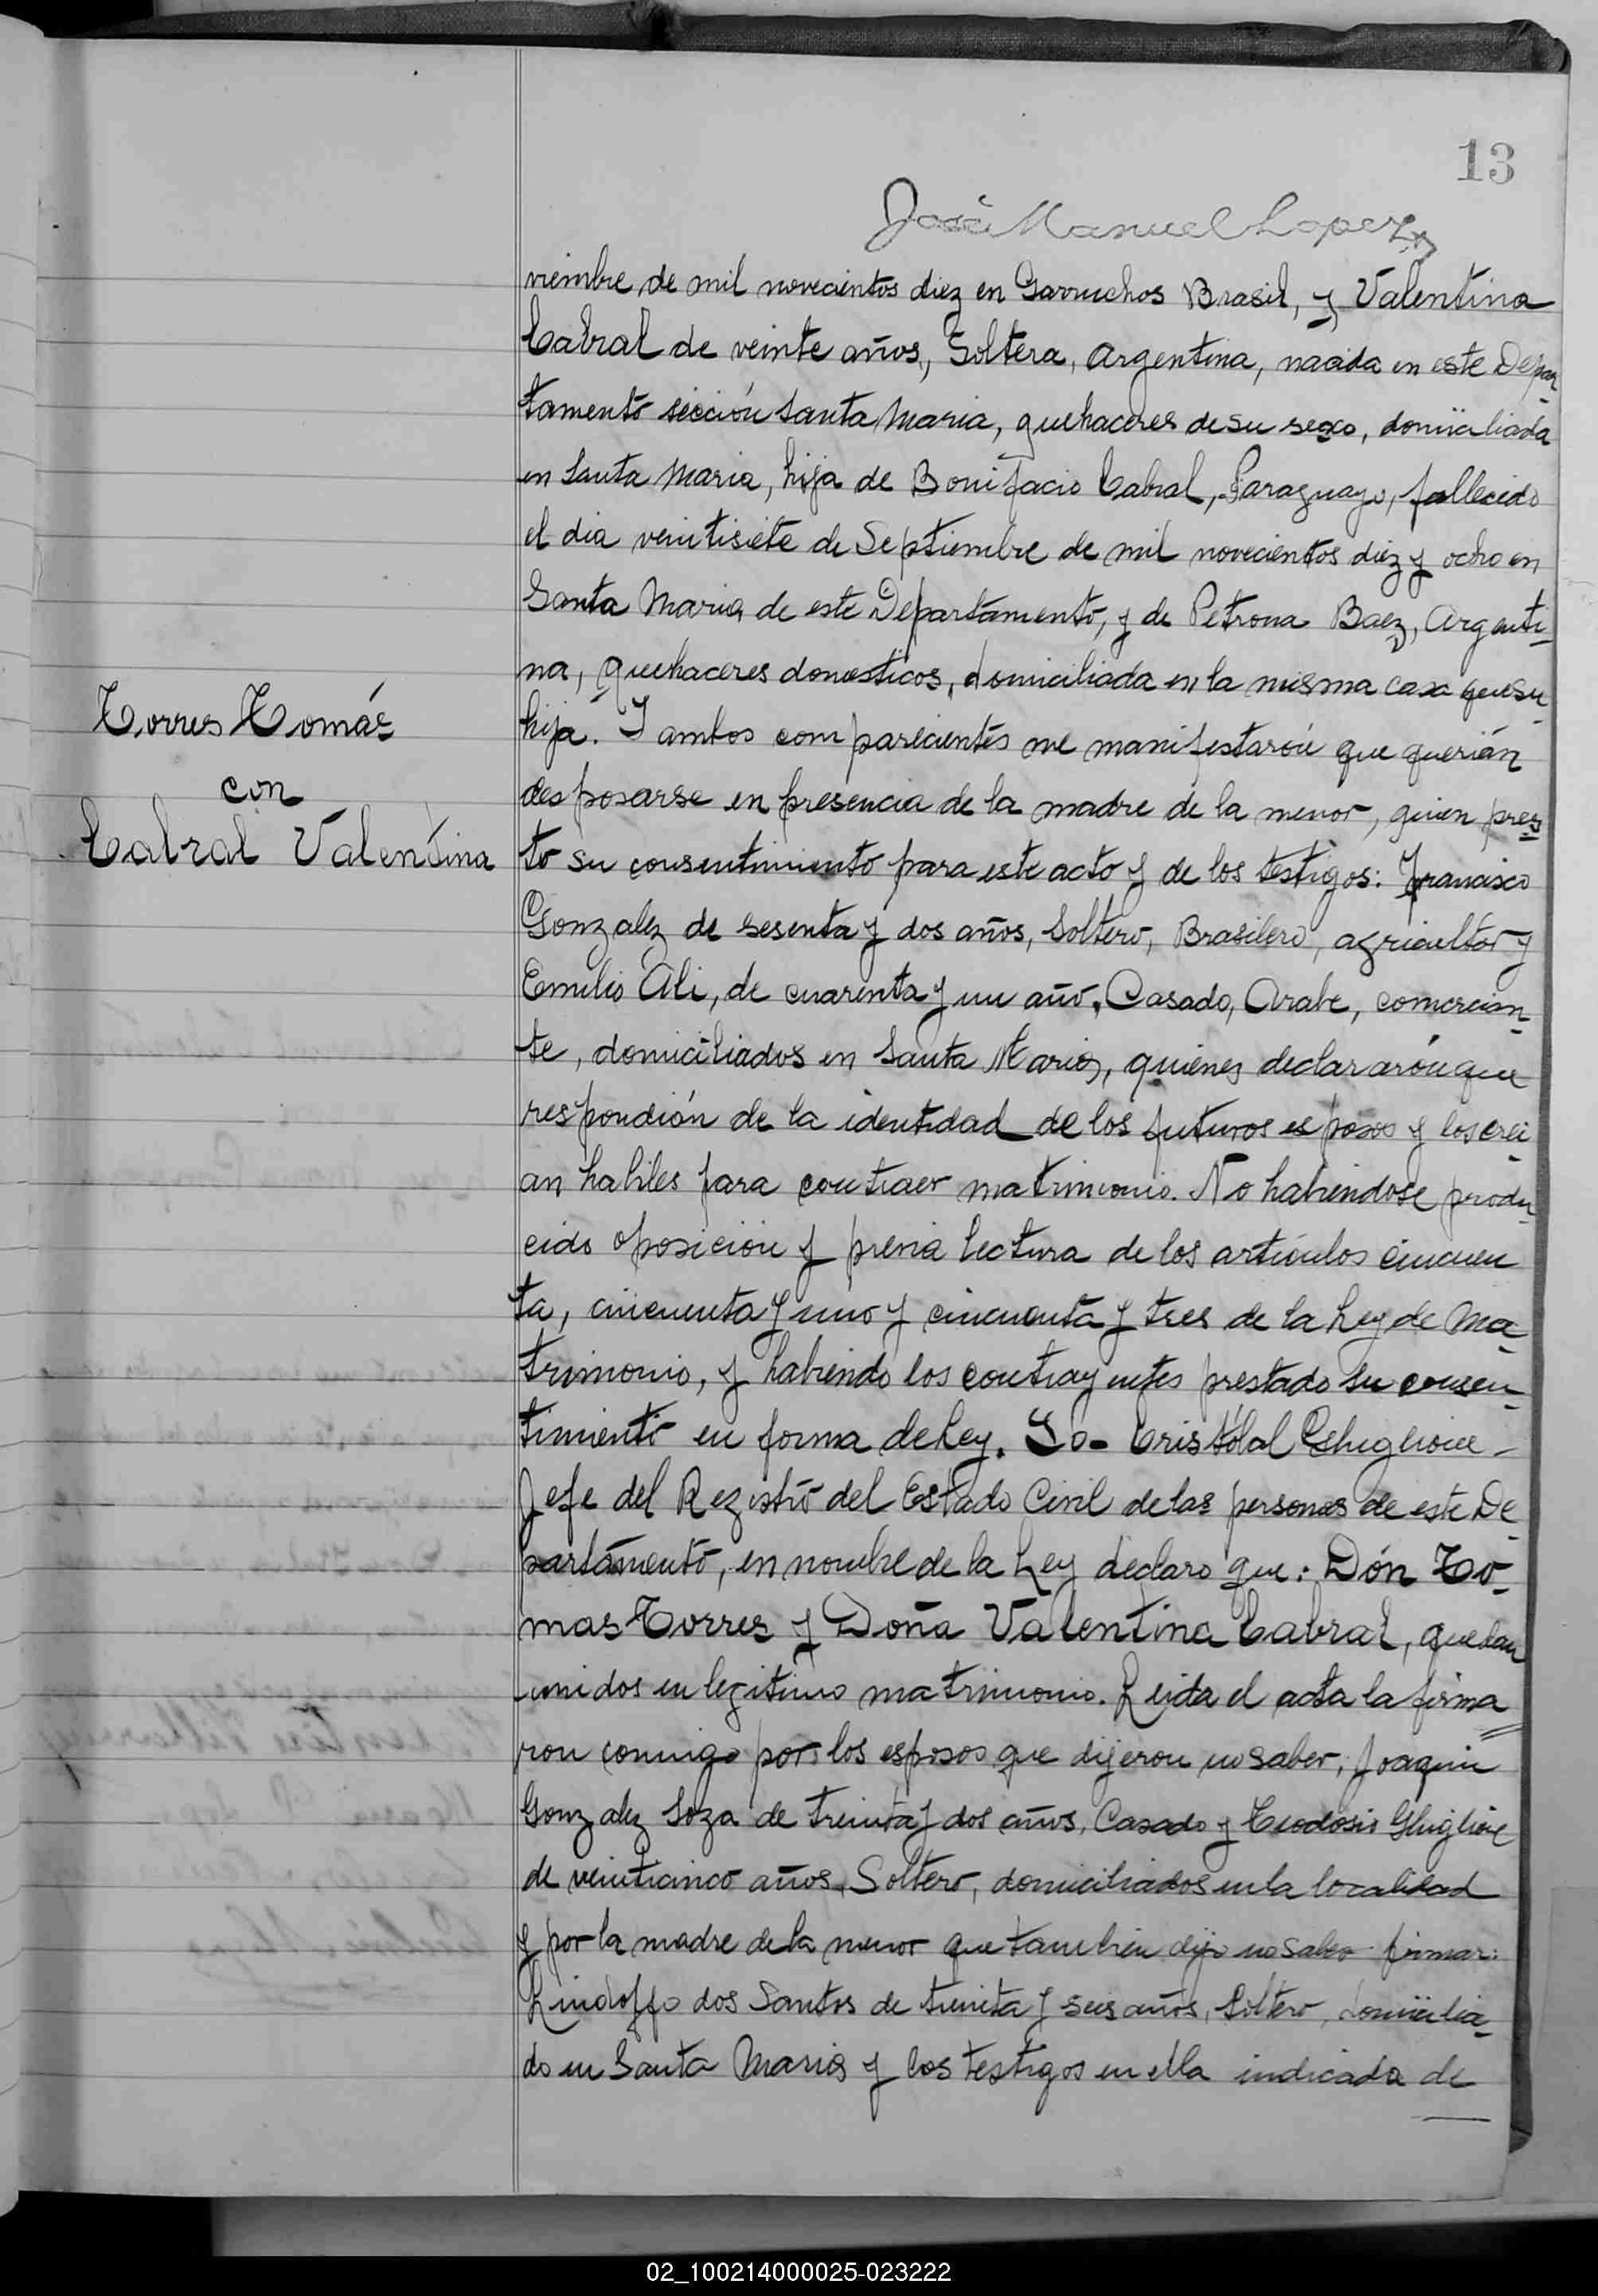 13
José Manuel Lopez
viembre de mil novecientos diez en Garruchos Brasil, y Valentina
Cabral de veinte años, Soltera, Argentina, nacida en este Depar
tamento sección Santa Maria, quehaceres de su sexo, domiciliada
en Santa Maria, hija de Bonifacio Cabral, Paraguayo, fallecido
el dia veintisiete de Septiembre de mil novecientos diez y ocho en
Santa Maria de este Departamento, y de Petrona Baez, Argenti
na, quehaceres domesticos, domiciliada en la misma casa que su
hija. I ambos comparecientes me manifestarón que querián
desposarse en presencia de la madre de la menor, quien pres
to su consentimiento para este acto y de los testigos: Francisco
Gonzalez de sesenta y dos años, Soltero, Brasilero, agricultor y
Emilio Ali, de cuarenta y un año, Casado, Arabe, comercian
te, domiciliados en Santa Maria, quienes declararón que
respondión de la identidad de los futuros esposos y los crei
an habiles para contraer matrimonio. No habiendose produ
cido oposición y previa lectura de los artículos cincuen
ta, cincuenta y uno y cincuenta y tres de la Ley de Ma
trimonio, y habiendo los contrayentes prestado su consen
timiento en forma de Ley. Yo- Cristóbal Ghiglione -
Jefe del Registro del Estado Civil de las personas de este De
partamento, en nombre de la Ley declaro que: Dón To
mas Torres y Doña Valentina Cabral, quedan
unidos en legitimo matrimonio. Leida el acta la firma
ron conmigo por los esposos que dijeron no saber, Joaquin
Gonzalez Soza de treinta y dos años, Casado y Teodosio Ghiglione
de veinticinco años, Soltero, domiciliados en la localidad
y por la madre de la menor que tambien dijo no saber firmar:
Lindolfo dos Santos de treinta y seis años, Soltero, domicilia
do en Santa Maria y los testigos en ella indicada de
Torres Tomás
con
Cabral Valentina
02_100214000025-023222